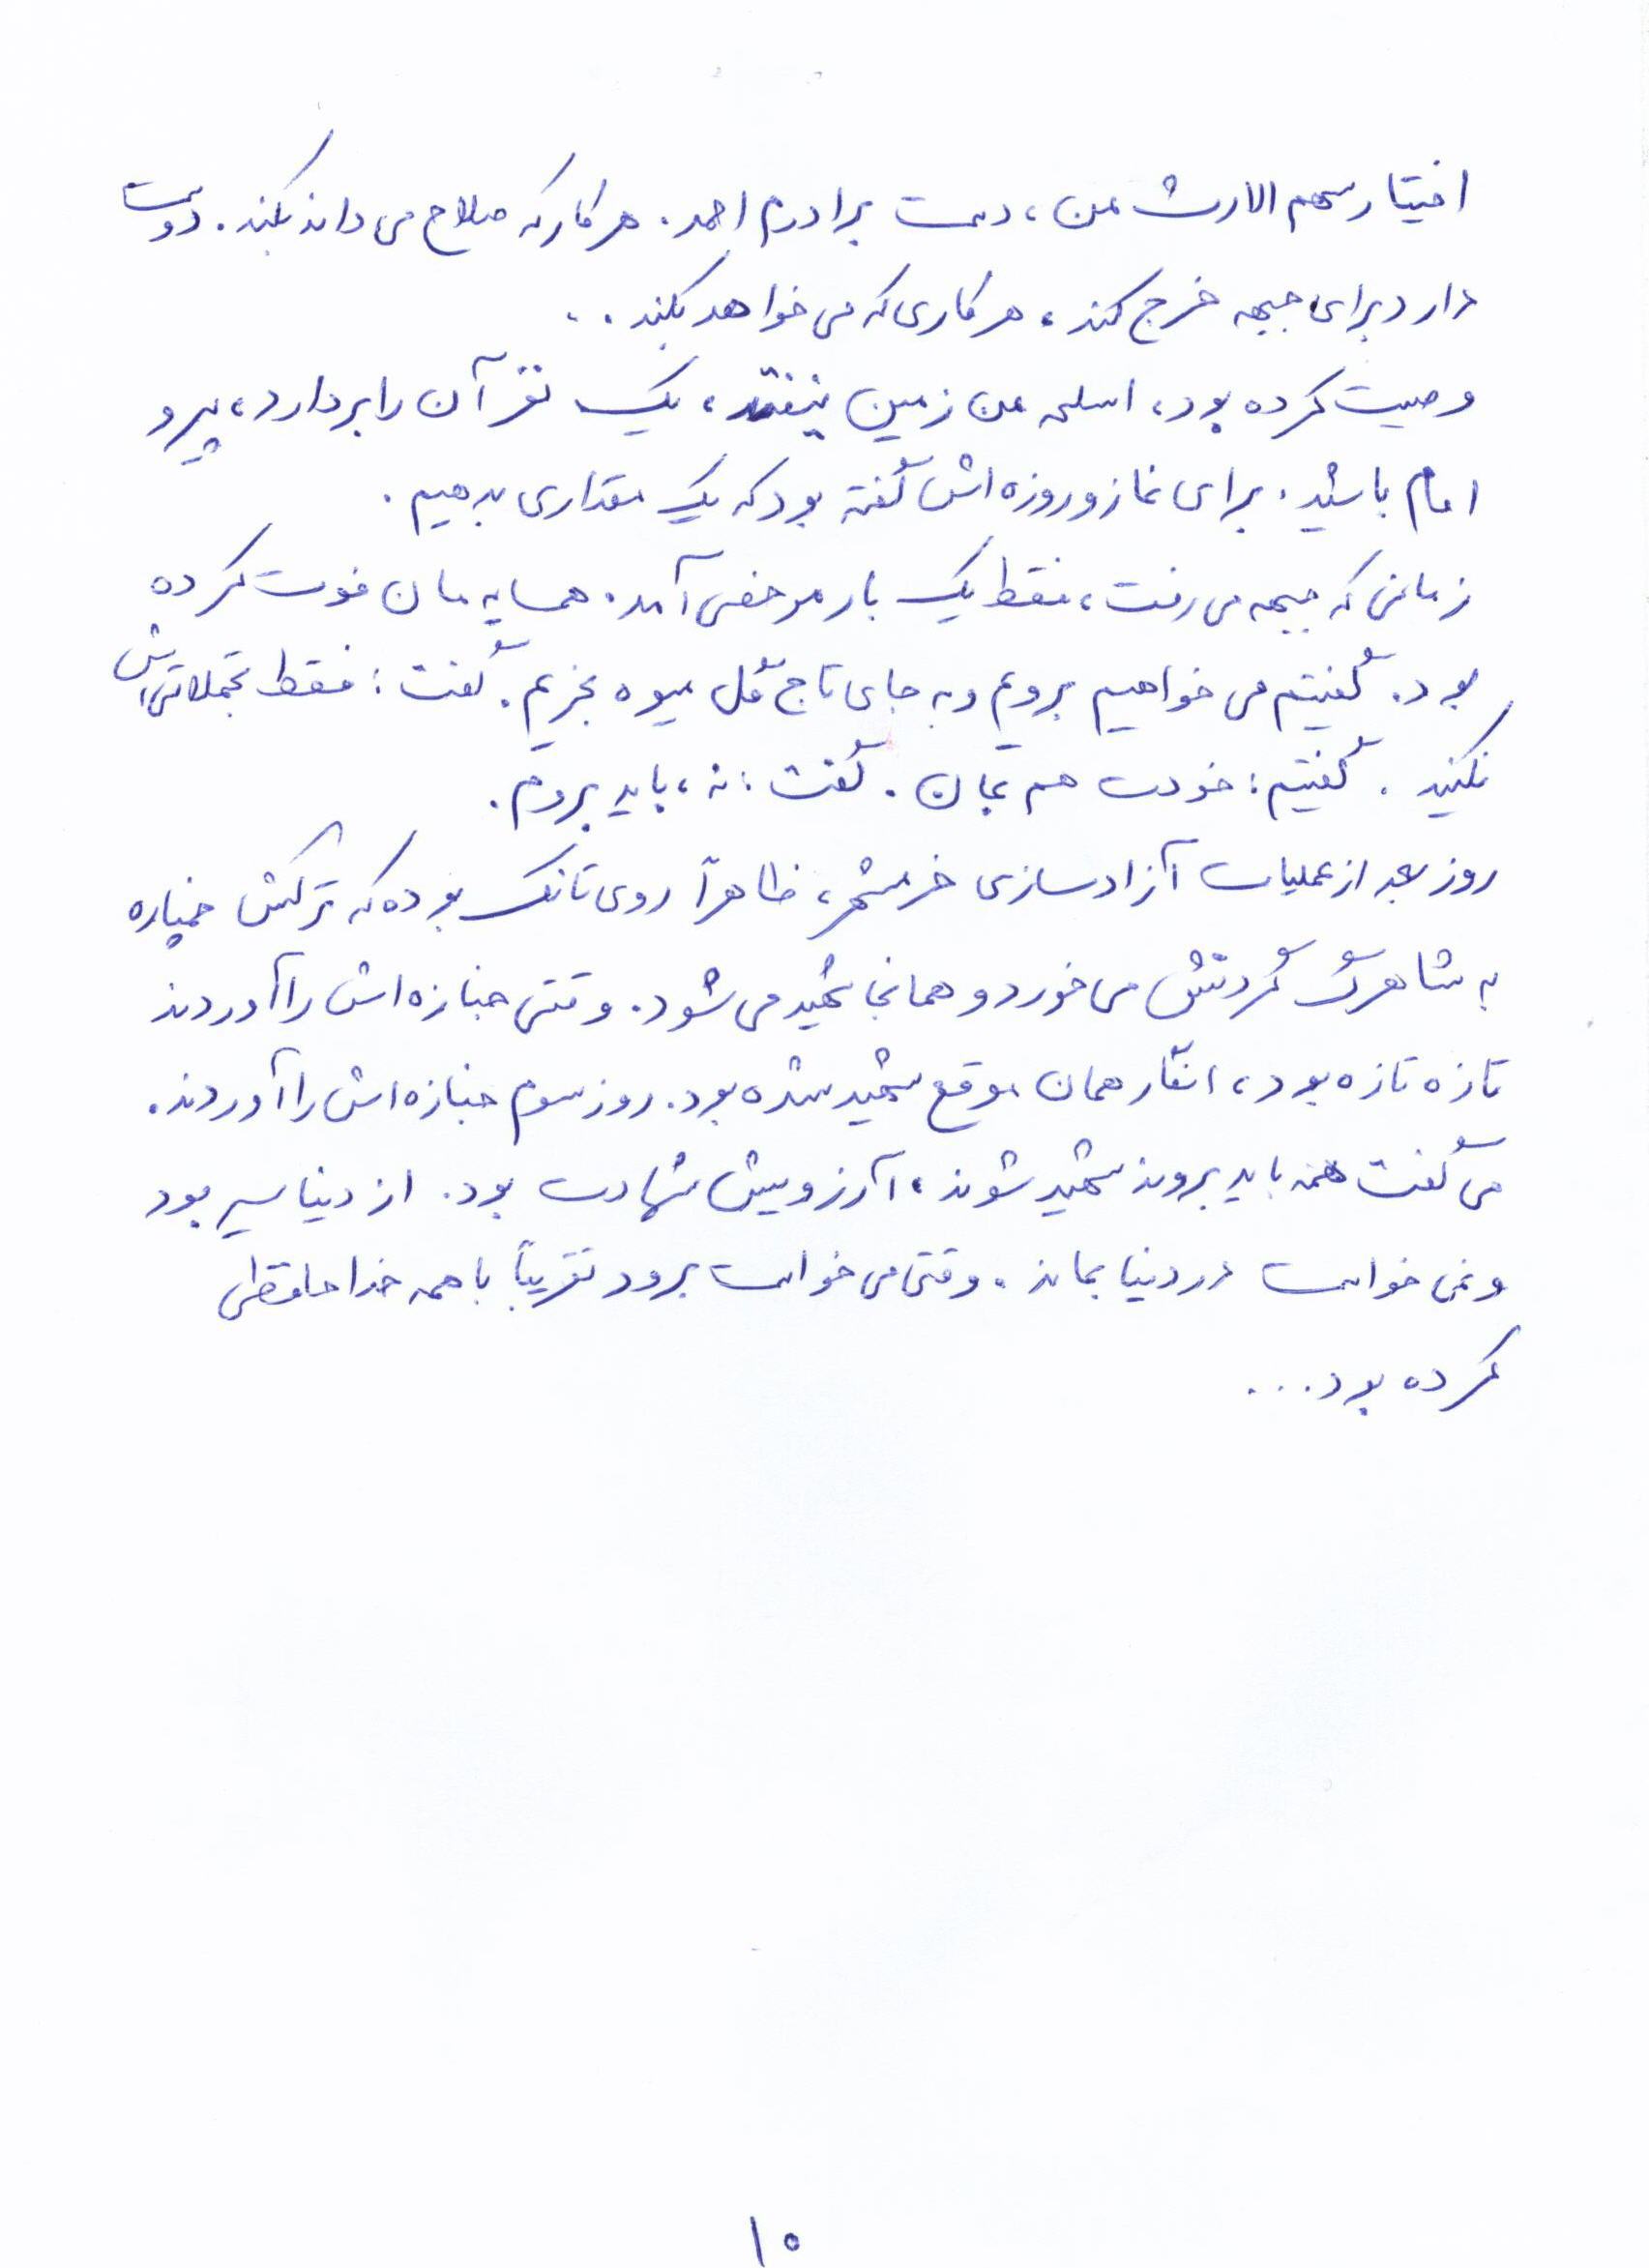 اختیار سهم الارث من، دست برادرم احمد. هر کار که صلاح می داند بکند. دوست
دارد برای جبهه خرج کند، هر کاری که می خواهد بکند. .
وصیت کرده بود، اسلحه من زمین نیفتد، یک نفر آن را بردارد، پیرو
امام باشید. برای نماز و روزه اش گفته بود که یک مقداری بدهیم.
زمانی که جبهه می رفت، فقط یک بار مرخصی آمد. همسایه مان فوت کرده
بود. گفتیم می خواهیم برویم و به جای تاج گل میوه بخریم. گفت: فقط تجملاتی اش
نکنید. گفتیم: خودت هم بمان. گفت: نه، باید بروم.
روز بعد از عملیات آزادسازی خرمشهر، ظاهراً روی تانک بوده که ترکش خمپاره
به شاهرگ گردنش می خورد و همانجا شهید می شود. وقتی جنازه اش را آوردند
تازه تازه بود، انگار همان موقع شهید شده بود. روز سوم جنازه اش را آوردند.
می گفت همه باید بروند شهید شوند، آرزویش شهادت بود. از دنیا سیر بود
و نمی خواست در دنیا بماند. وقتی می خواست برود تقریباً با همه خداحافظی
کرده بود...
۱۰